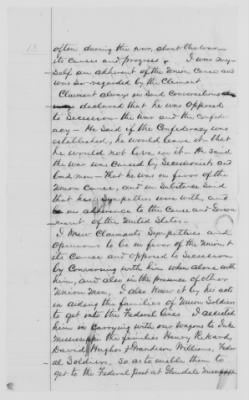 13
often during the war, about the war
its causes and progress. I was my-
self an adherent of the Union Cause and
was so regarded by the Claimant
Claimant always in said Conversations
declared that he was opposed
to Secession - the war and the Confed-
eracy - He said if the Confederacy was
established, he would leave it. that
he would not live in it. He said
the war was caused by Secessionists and
bad men - That he was in favor of the
Union Cause, and in Substance said
that his Sympathies were with, and
an adherence to the cause and Govern-
ment of the United States.
I knew Claimants Sympathies and
Opinions to be in favor of the Union &
its Cause and opposed to Secession
by Conversing with him when alone with
him, and also in the presence of other
Union Men, I also knew it by his acts
in aiding the families of Union Soldiers
to get into the Federal lines. I assisted
him in carrying with our wagons to
Mississippi the families Henry Rickard,
David Hughes & Harrison William, Fede-
ral Soldiers, so as to enable them to
get to the Federal post at Glendale Mississippi